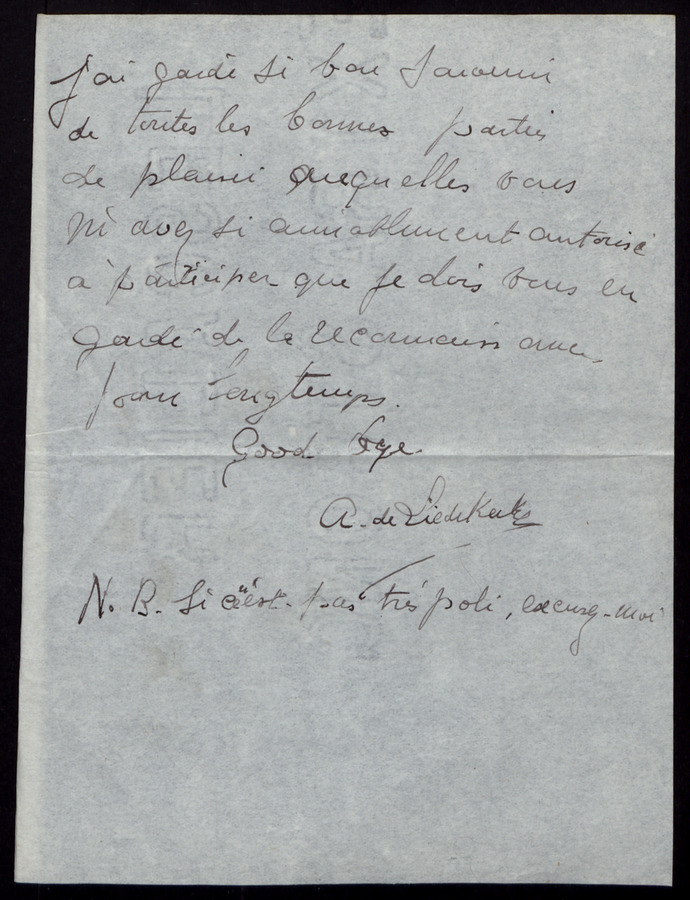 j'ai gardé si bon souvenir
de toutes les bonnes parties
de plaisir auxquelles vous
m'avez si aimablement autorisé
à participer que je dois vous en
gardé de la reconnaissance
pour longtemps.
Good bye.
A. de Liedekerke
N. B. Si c'est pas très poli, excusez-moi